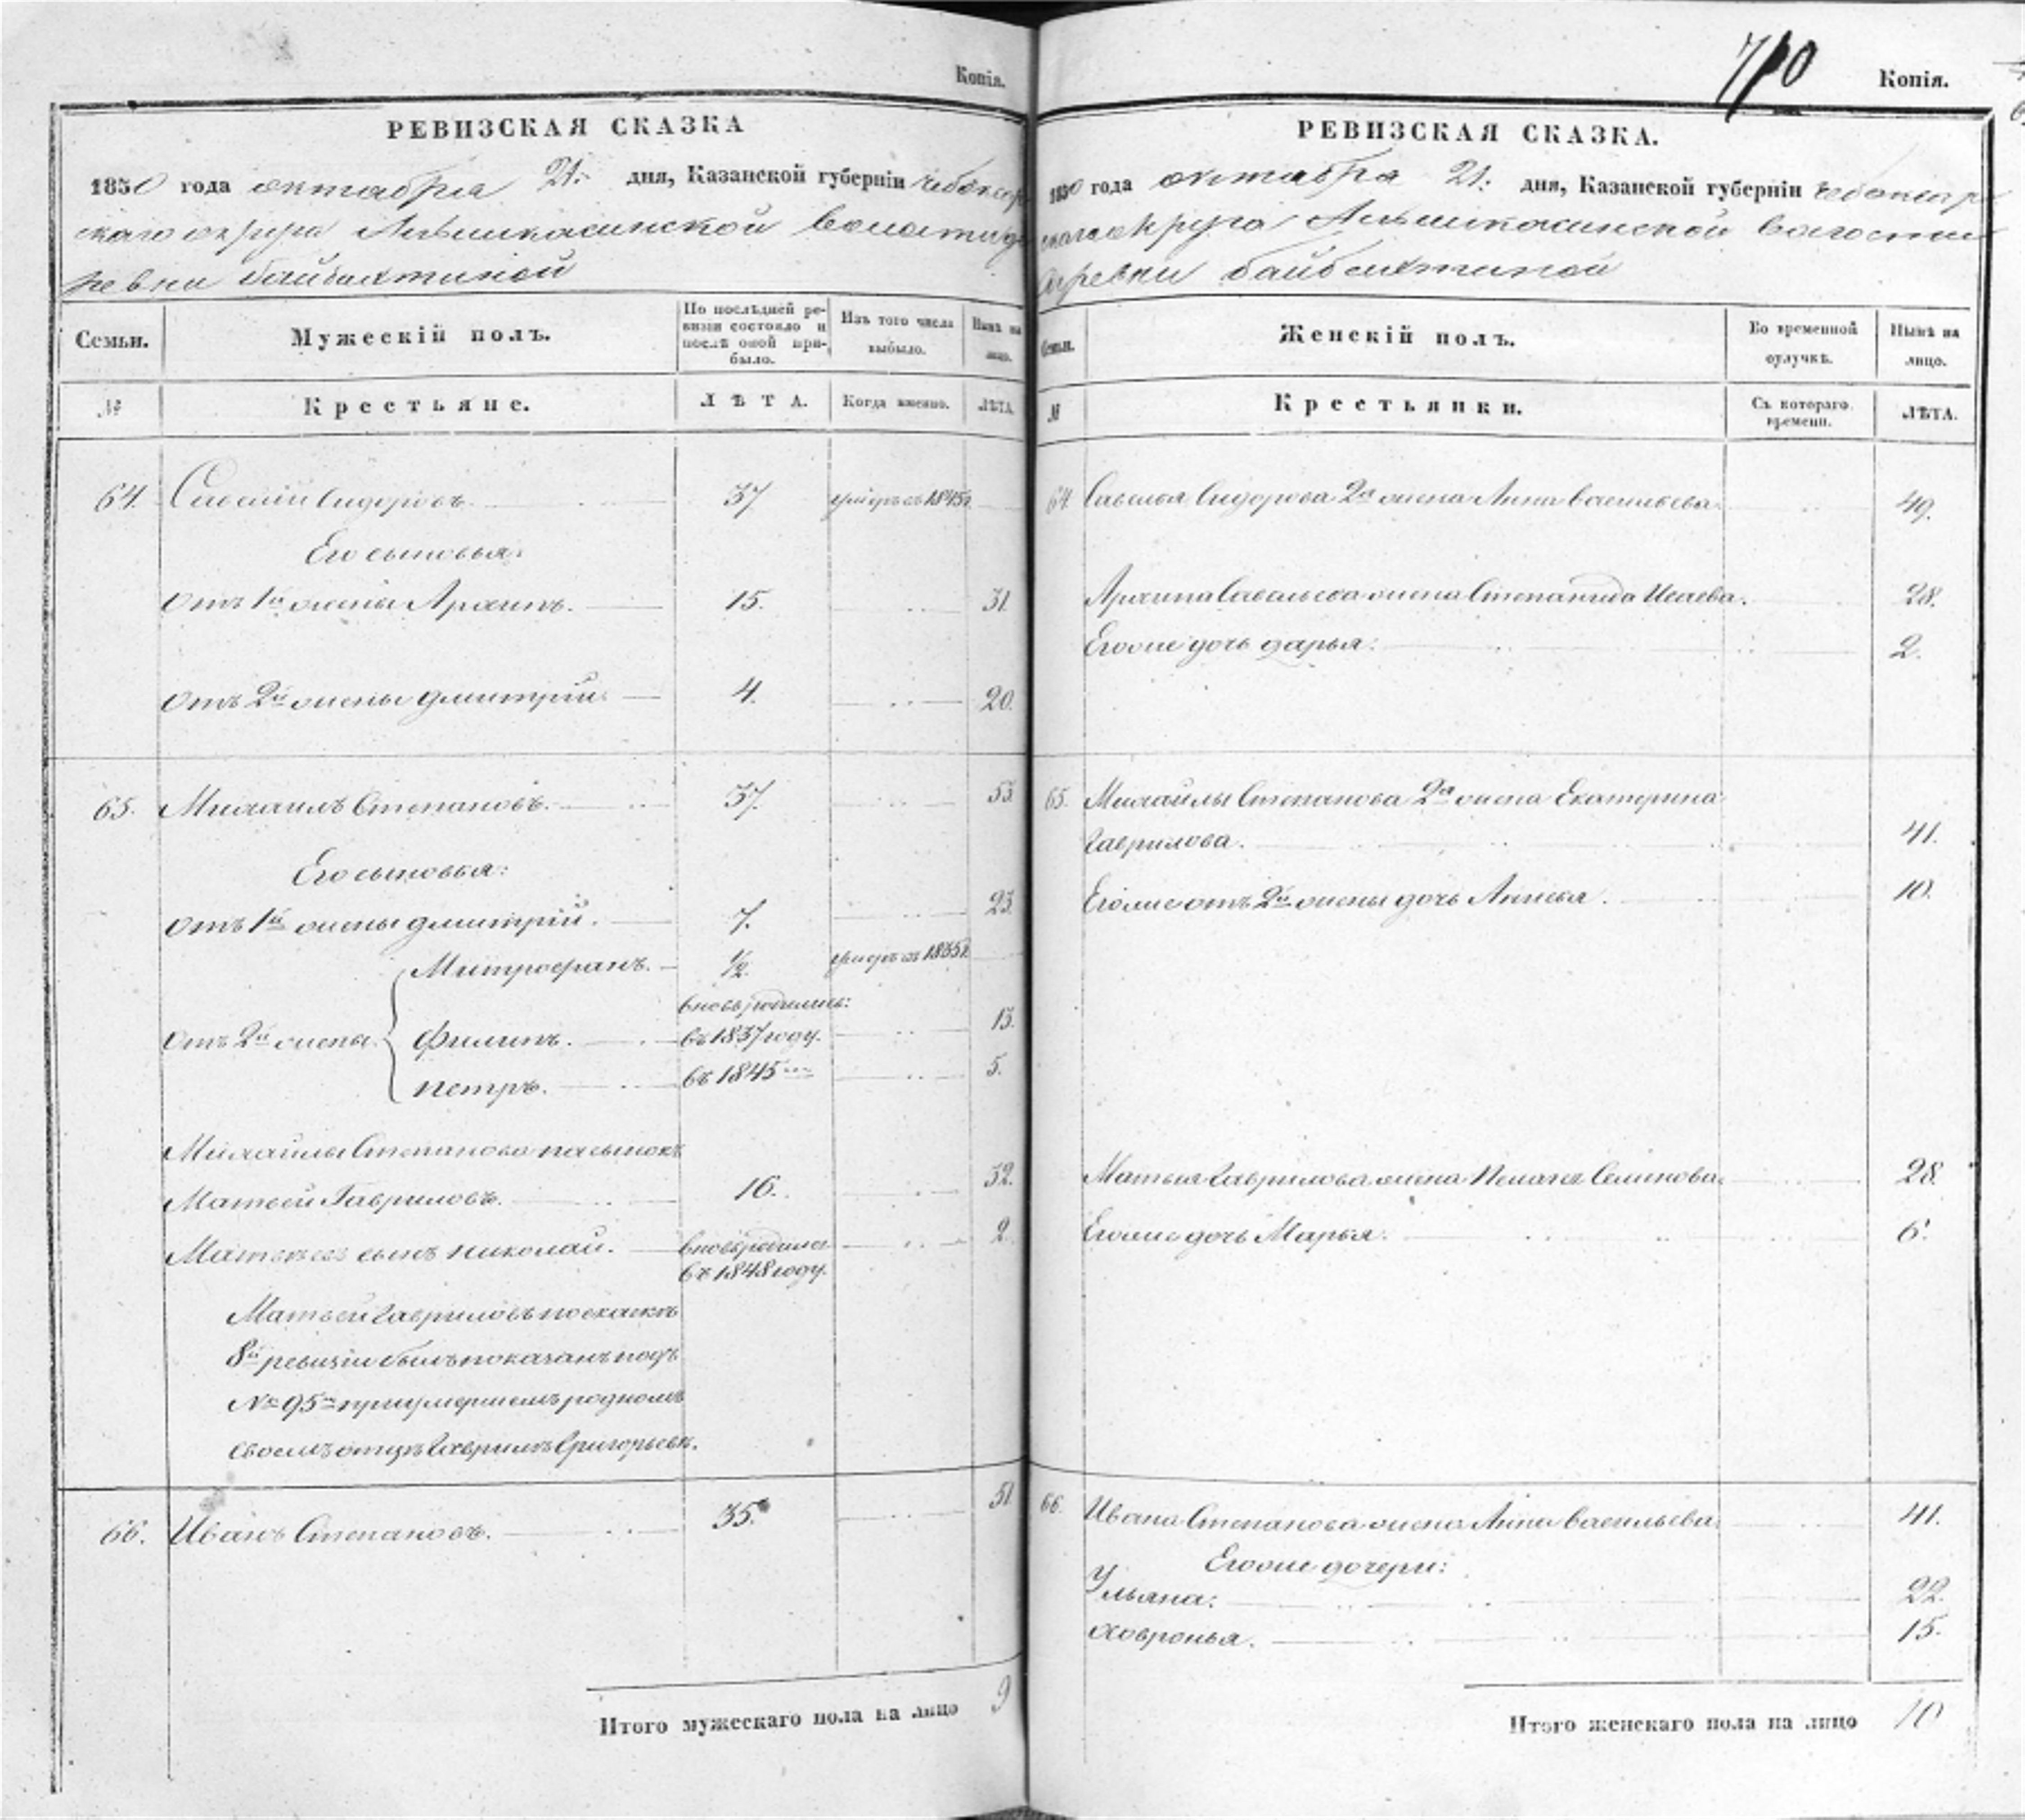 Копія.
РЕВИЗСКАЯ СКАЗКА
1850 года октября 21: дня, Казанской губерніи Чебоксар
скаго округа Алымкасинской волости де
ревни Байбахтиной
Семьи.
Мужескій полъ.
По послѣдней ре-
визіи состояло и
послѣ оной при-
было.
Изъ того числа
выбыло.
Нынѣ на
лицо.
№
Крестьяне.
ЛѢТА.
Когда именно.
ЛѢТА.
64. Савелій Сидоровъ. 37 умеръ въ 1845г
Его сыновья:
Отъ 1й жены Архипъ. 15. 31.
Отъ 2й жены Дмитрій. 4. 20.
65. Михаилъ Степановъ. 37. 53.
Его сыновья:
Отъ 1й жены Дмитрій. 7. 23.
Митрофанъ. ½. умеръ въ 1835г
вновь рожденъ:
Отъ 2й жены Филипъ. въ 1837 году. 13.
Петръ. въ 1845 5.
Михайлы Степанова пасынокъ
Матвей Гавриловъ. 16. 32.
Матвеевъ сынъ Николай. вновь рожденъ 2.
въ 1848 году.
Матвей Гавриловъ по сказкѣ
8й ревизіи былъ показанъ подъ
№ 95м при умершемъ родномъ
своемъ отцѣ Гаврилѣ Григорьевѣ.
66. Иванъ Степановъ. 35. 51
Итого мужескаго пола на лицо 9
710
Копія.
РЕВИЗСКАЯ СКАЗКА.
1850 года октября 21: дня, Казанской губерніи Чебоксар
скаго округа Алымкасинской волости
деревни Байбахтиной
Семьи.
Женскій полъ.
Во временной
отлучкѣ.
Нынѣ на
лицо.
№
Крестьянки.
Съ котораго
времени.
ЛѢТА.
64. Савелья Сидорова 2я жена Анна Васильева. 49.
Архипа Савельева жена Степанида Исаева. 28.
Его же дочь Дарья. 2.
65. Михайлы Степанова 2я жена Екатерина
Гаврилова. 41.
Его же отъ 2й жены дочь Анисья. 10.
Матвея Гаврилова жена Пелагея Семенова. 28.
Его же дочь Марья. 6.
66. Ивана Степанова жена Анна Васильева. 41.
Его же дочери:
Ульяна. 22.
Ховронья. 15.
Итого женскаго пола на лицо 10